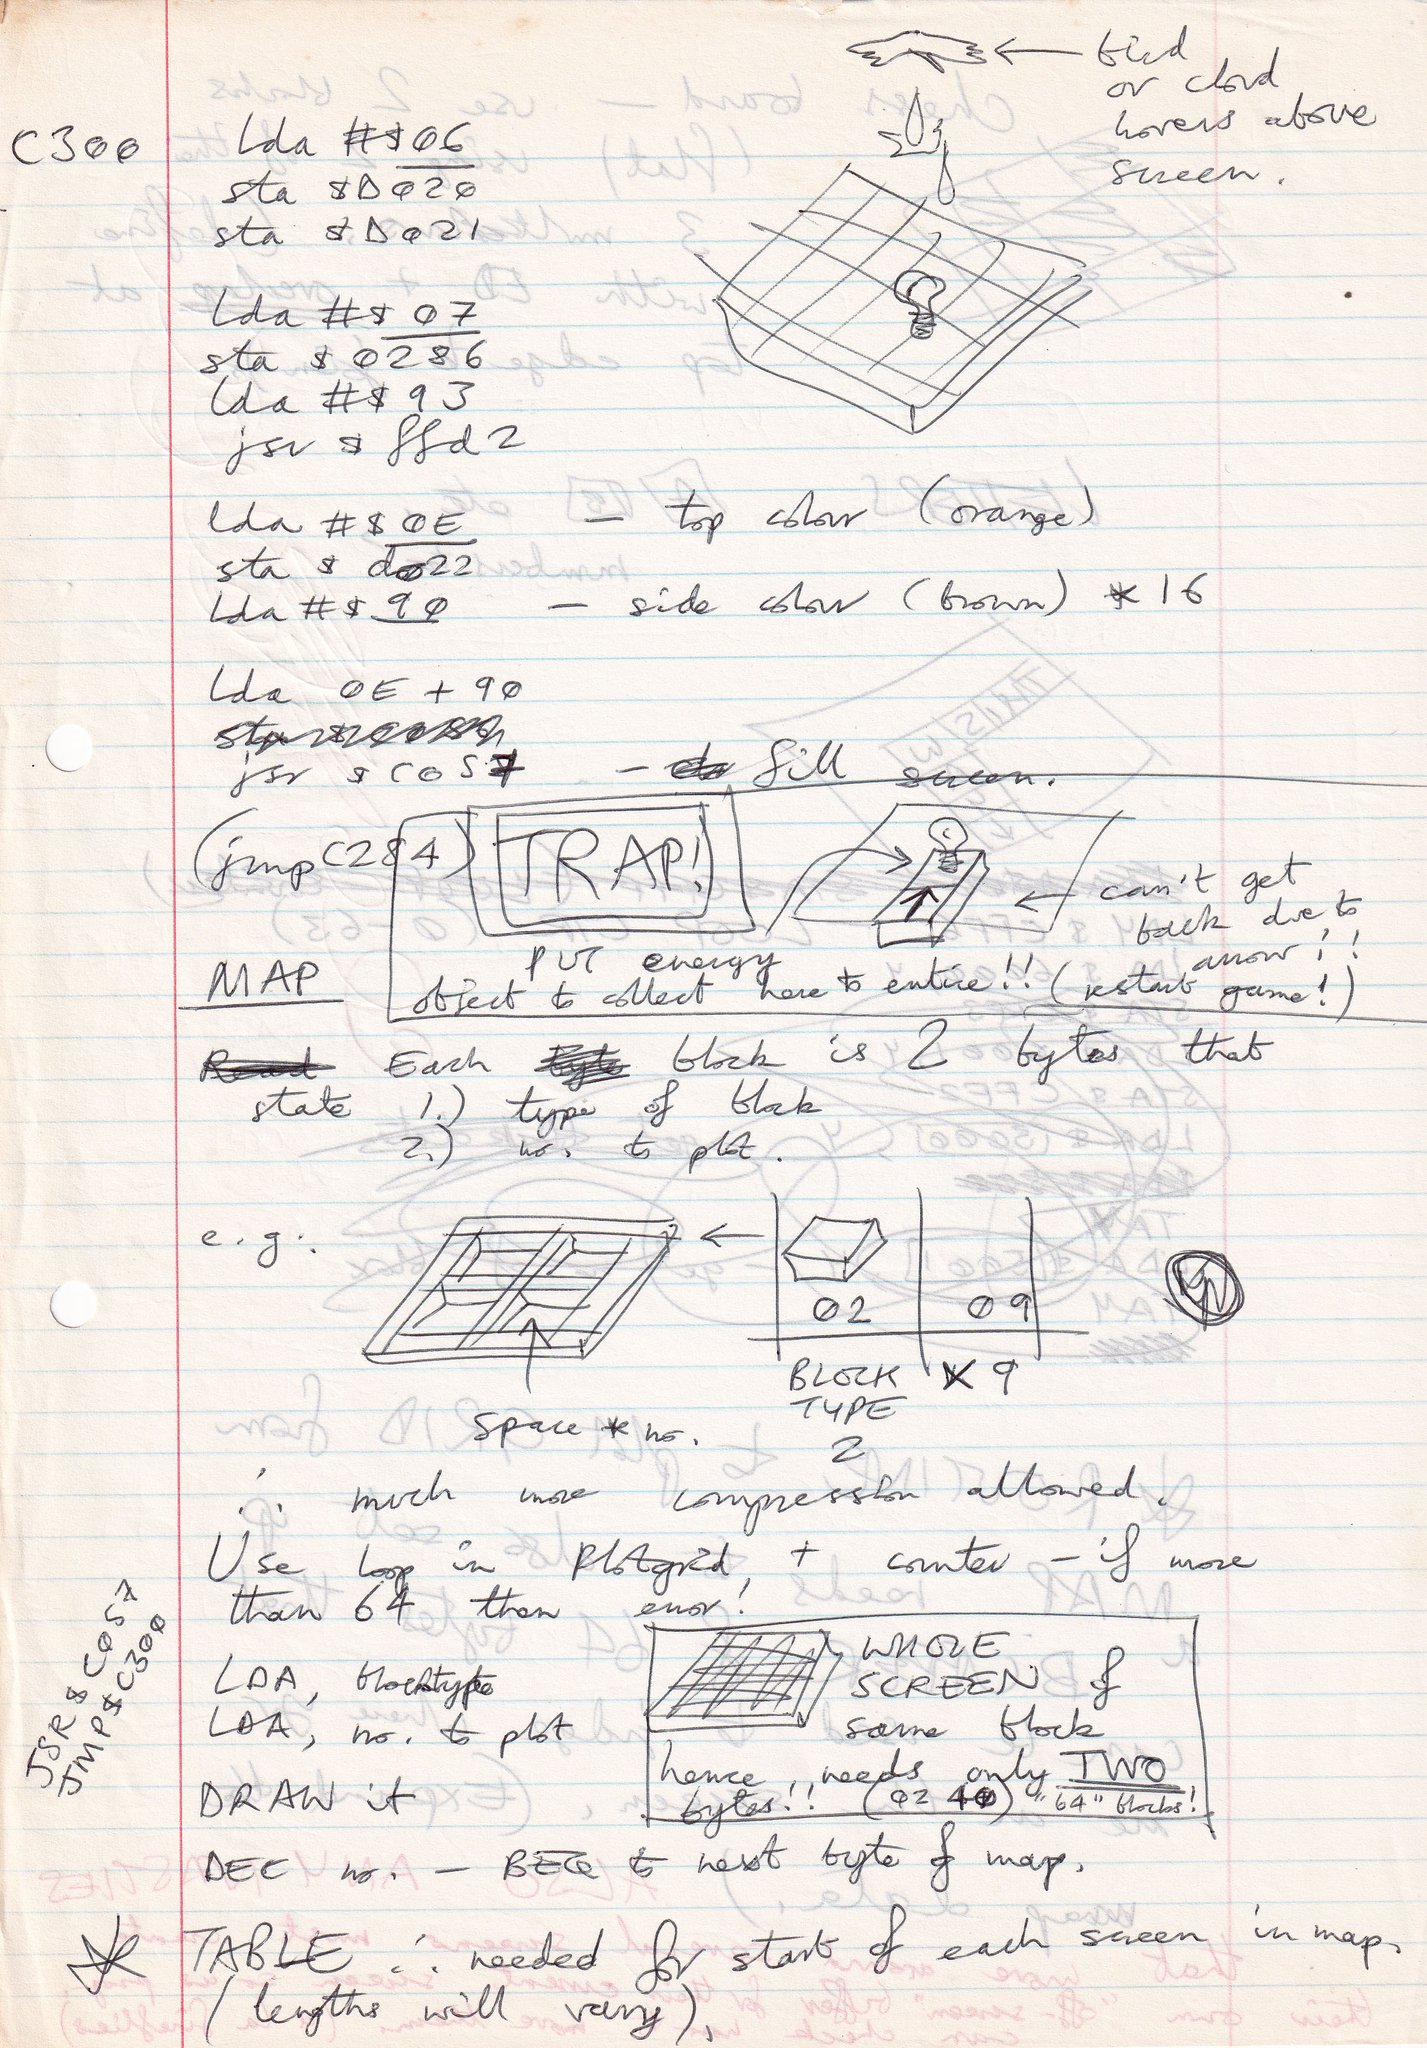 bird
or cloud
hovers above
screen.
C300 lda #$06
sta $D020
sta $D021
lda #$07
sta $0286
lda #$93
jsr $ffd2
lda #$0E — top colour (orange)
sta $d022
lda #$90 — side colour (brown) * 16
lda 0E + 90
jsr $C057 — fill screen.
(jmp C284)
TRAP!
can't get
back due to
arrow!!
PUT energy
object to collect here to entice!! (restart game!)
MAP
Each block is 2 bytes that
state 1.) type of block
2.) no. to plot.
e.g:
02 09
BLOCK TYPE 2
* 9
space * no.
∴ much more compression allowed.
Use loop in Plotgrid, + counter — if more
than 64 then error!
JSR $C057
JMP $C300
LDA, blocktype
LDA, no. to plot
DRAW it
WHOLE
SCREEN of
same block
hence, needs only TWO
bytes!! (02 40) "64" blocks!
DEC no. — BEQ to next byte of map.
* TABLE ∴ needed for start of each screen in map.
(lengths will vary).